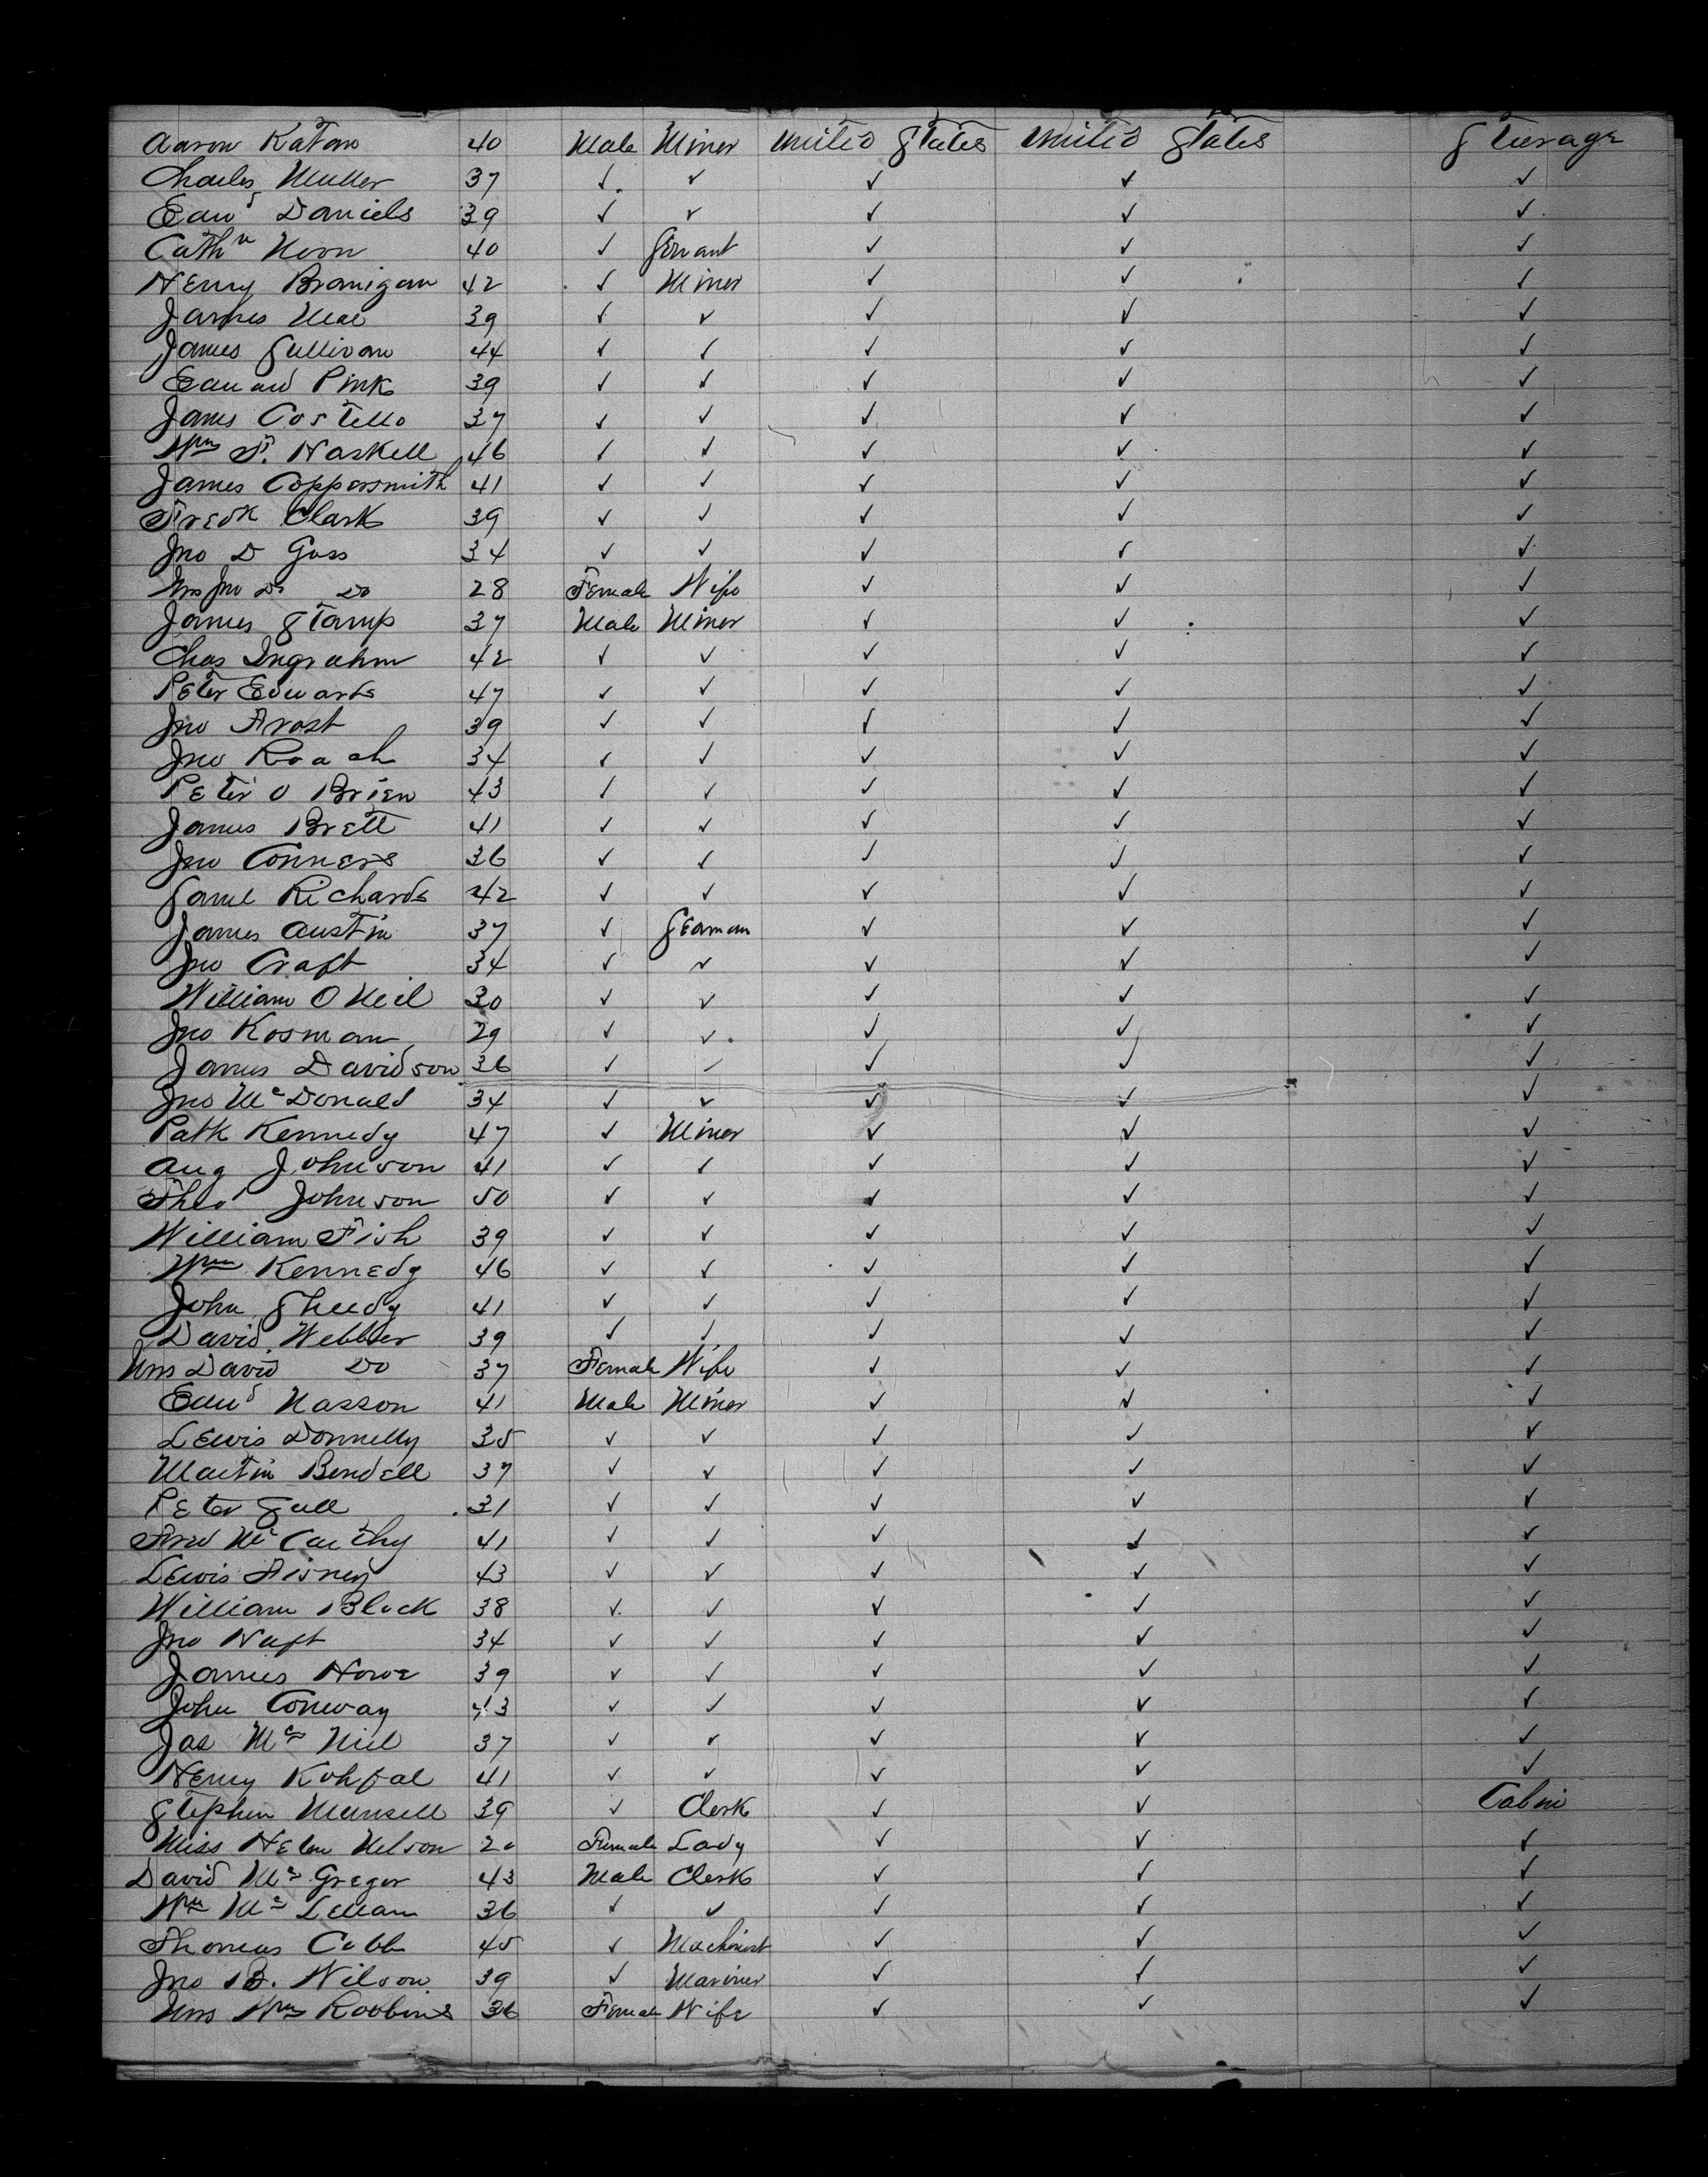 Aaron Katan 40 Male Miner United States United States Steerage
Charles Muller 37 ✓ ✓ ✓ ✓ ✓
Edwd Daniels 39 ✓ ✓ ✓ ✓ ✓
Cathn Noon 40 ✓ Servant ✓ ✓ ✓
Henry Branigan 42 ✓ Miner ✓ ✓ ✓
James 39 ✓ ✓ ✓ ✓ ✓
James Sullivan 44 ✓ ✓ ✓ ✓ ✓
Edward Pink 39 ✓ ✓ ✓ ✓ ✓
James Costello 37 ✓ ✓ ✓ ✓ ✓
Wm F. Haskell 46 ✓ ✓ ✓ ✓ ✓
James Coppersmith 41 ✓ ✓ ✓ ✓ ✓
Fredk Clark 39 ✓ ✓ ✓ ✓ ✓
Jno D Goss 34 ✓ ✓ ✓ ✓ ✓
Mrs Jno D. Do 28 Female Wife ✓ ✓ ✓
James Stamp 37 Male Miner ✓ ✓ ✓
Chas Ingrahm 42 ✓ ✓ ✓ ✓ ✓
Peter Edwards 47 ✓ ✓ ✓ ✓ ✓
Jno Frost 39 ✓ ✓ ✓ ✓ ✓
Jno Roach 34 ✓ ✓ ✓ ✓ ✓
Peter O Brien 43 ✓ ✓ ✓ ✓ ✓
James Brett 41 ✓ ✓ ✓ ✓ ✓
Jno Conners 36 ✓ ✓ ✓ ✓ ✓
Saml Richards 42 ✓ ✓ ✓ ✓ ✓
James Austin 37 ✓ Seaman ✓ ✓ ✓
Jno Craft 34 ✓ ✓ ✓ ✓ ✓
William O Neil 30 ✓ ✓ ✓ ✓ ✓
Jno Kosman 29 ✓ ✓ ✓ ✓ ✓
James Davidson 36 ✓ ✓ ✓ ✓ ✓
Jno McDonald 34 ✓ ✓ ✓ ✓ ✓
Patk Kennedy 47 ✓ Miner ✓ ✓ ✓
Aug Johnson 41 ✓ ✓ ✓ ✓ ✓
Theo Johnson 50 ✓ ✓ ✓ ✓ ✓
William Fish 39 ✓ ✓ ✓ ✓ ✓
Wm Kennedy 46 ✓ ✓ ✓ ✓ ✓
John Sheedy 41 ✓ ✓ ✓ ✓ ✓
David Webber 39 ✓ ✓ ✓ ✓ ✓
Mrs David Do 37 Female Wife ✓ ✓ ✓
Edwd Nasson 41 Male Miner ✓ ✓ ✓
Lewis Donnelly 35 ✓ ✓ ✓ ✓ ✓
Martin Bendell 37 ✓ ✓ ✓ ✓ ✓
Peter Gull 31 ✓ ✓ ✓ ✓ ✓
Fred McCarthy 41 ✓ ✓ ✓ ✓ ✓
Lewis Fisney 43 ✓ ✓ ✓ ✓ ✓
William Block 38 ✓ ✓ ✓ ✓ ✓
Jno Haft 34 ✓ ✓ ✓ ✓ ✓
James Howe 39 ✓ ✓ ✓ ✓ ✓
John Conway 43 ✓ ✓ ✓ ✓ ✓
Jas Mc Neil 37 ✓ ✓ ✓ ✓ ✓
Henry Kohfal 41 ✓ ✓ ✓ ✓ ✓
Stephen Munsell 39 ✓ Clerk ✓ ✓ Cabin
Miss Helen Nelson 20 Female Lady ✓ ✓ ✓
David Mc Gregor 43 Male Clerk ✓ ✓ ✓
Wm Mc Lellan 36 ✓ ✓ ✓ ✓ ✓
Thomas Cobb 45 ✓ Machinist ✓ ✓ ✓
Jno B. Wilson 39 ✓ Mariner ✓ ✓ ✓
Mrs Wm Robbins 36 Female Wife ✓ ✓ ✓